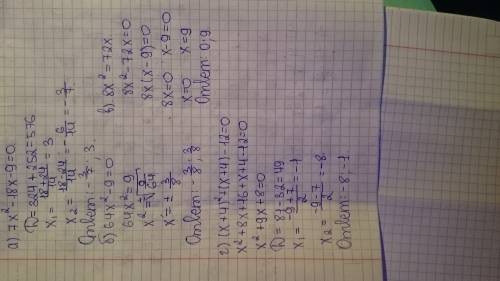 а) 7x²-18x-9=0
D=324+252=576
x₁ = (18+24)/14 = 3
x₂ = (18-24)/14 = -6/14 = -3/7
Ответ: -3/7; 3.
б) 64x²-9=0
64x²=9
x²=√9/64
x=±3/8
Ответ: -3/8; 3/8
в) 8x²=72x
8x²-72x=0
8x(x-9)=0
8x=0 x-9=0
x=0 x=9
Ответ: 0; 9
г) (x+4)²+(x+4)-12=0
x²+8x+16+x+4-12=0
x²+9x+8=0
D=81-32=49
x₁ = (-9+7)/2 = -1
x₂ = (-9-7)/2 = -8.
Ответ: -8; -1.